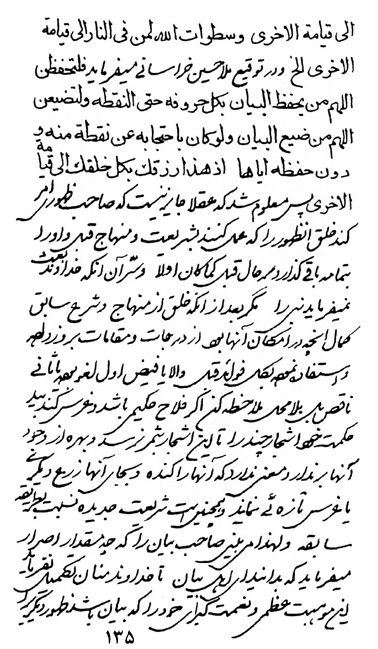 الی قیامة الاخری وسطوات الله لمن فی النار الی قیامة
الاخری الخ و در توقیع ملا حسین خراسانی میفرماید فلتحفظن
اللهم من یحفظ البیان بکل حروفه حتی النقطه ولتضیعن
اللهم من ضیع البیان ولو کان باحتجابه عن نقطة منه و
دون حفظه ایاها اذ هذا رزقك بکل خلقك الی قیامة
الاخری پس معلوم شد که عقلا جایز نیست که صاحب ظهوری امر
کند خلق انظهور را که عمل کنند بشریعت و منهاج قبل و او را
بتمامه باقی گذارد در حال قبل کما کان اولا و سر آن آنکه خداوند بعث
نمیفرماید نبی را مگر بعد از آنکه خلق از منهاج و شرع سابق
کمال آنچه در امکان آنها بود از درجات و مقامات بروز داده
و استفاده نموده بکمال فواید قبل والا یا فیض اول لغو بوده یا ثانی
ناقص بل بلا محل ملاحظه کن اگر فلاح حکیم باشد و غرس کند بید
حکمت خود اشجار چند را تا این اشجار بثمر نرسد و بهره از وجود
آنها بر ندارد معنی ندارد که آنها را کنده و بجای آنها زرع دیگری
یا غرس تازه ئی نماید و همچنین است شریعت جدیده نسبت بشریعة
سابقه و لهذا می بینی صاحب بیان را که چه مقدار اصرار
میفرماید که بدانید ای اهل بیان تا خداوند بشما تکمیل نفرماید
این موهبت عظمی و نعمت کبرای خود را که بیان باشد ظهور دیگری را
۱۳۵